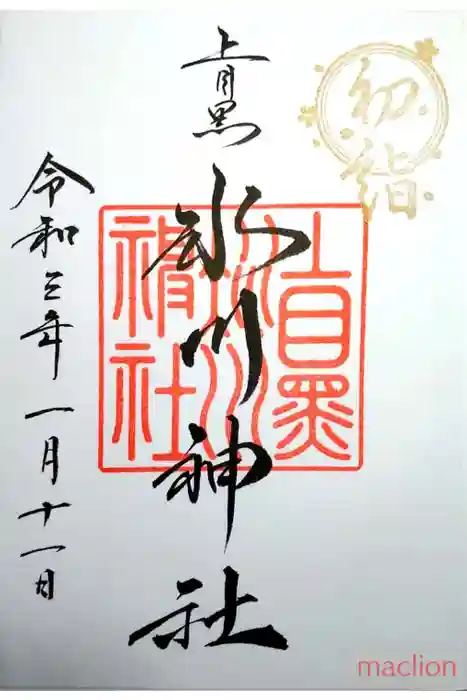 初詣
上目黒
氷川神社
上目黒
氷川
神社
令和三年一月十一日
maclion